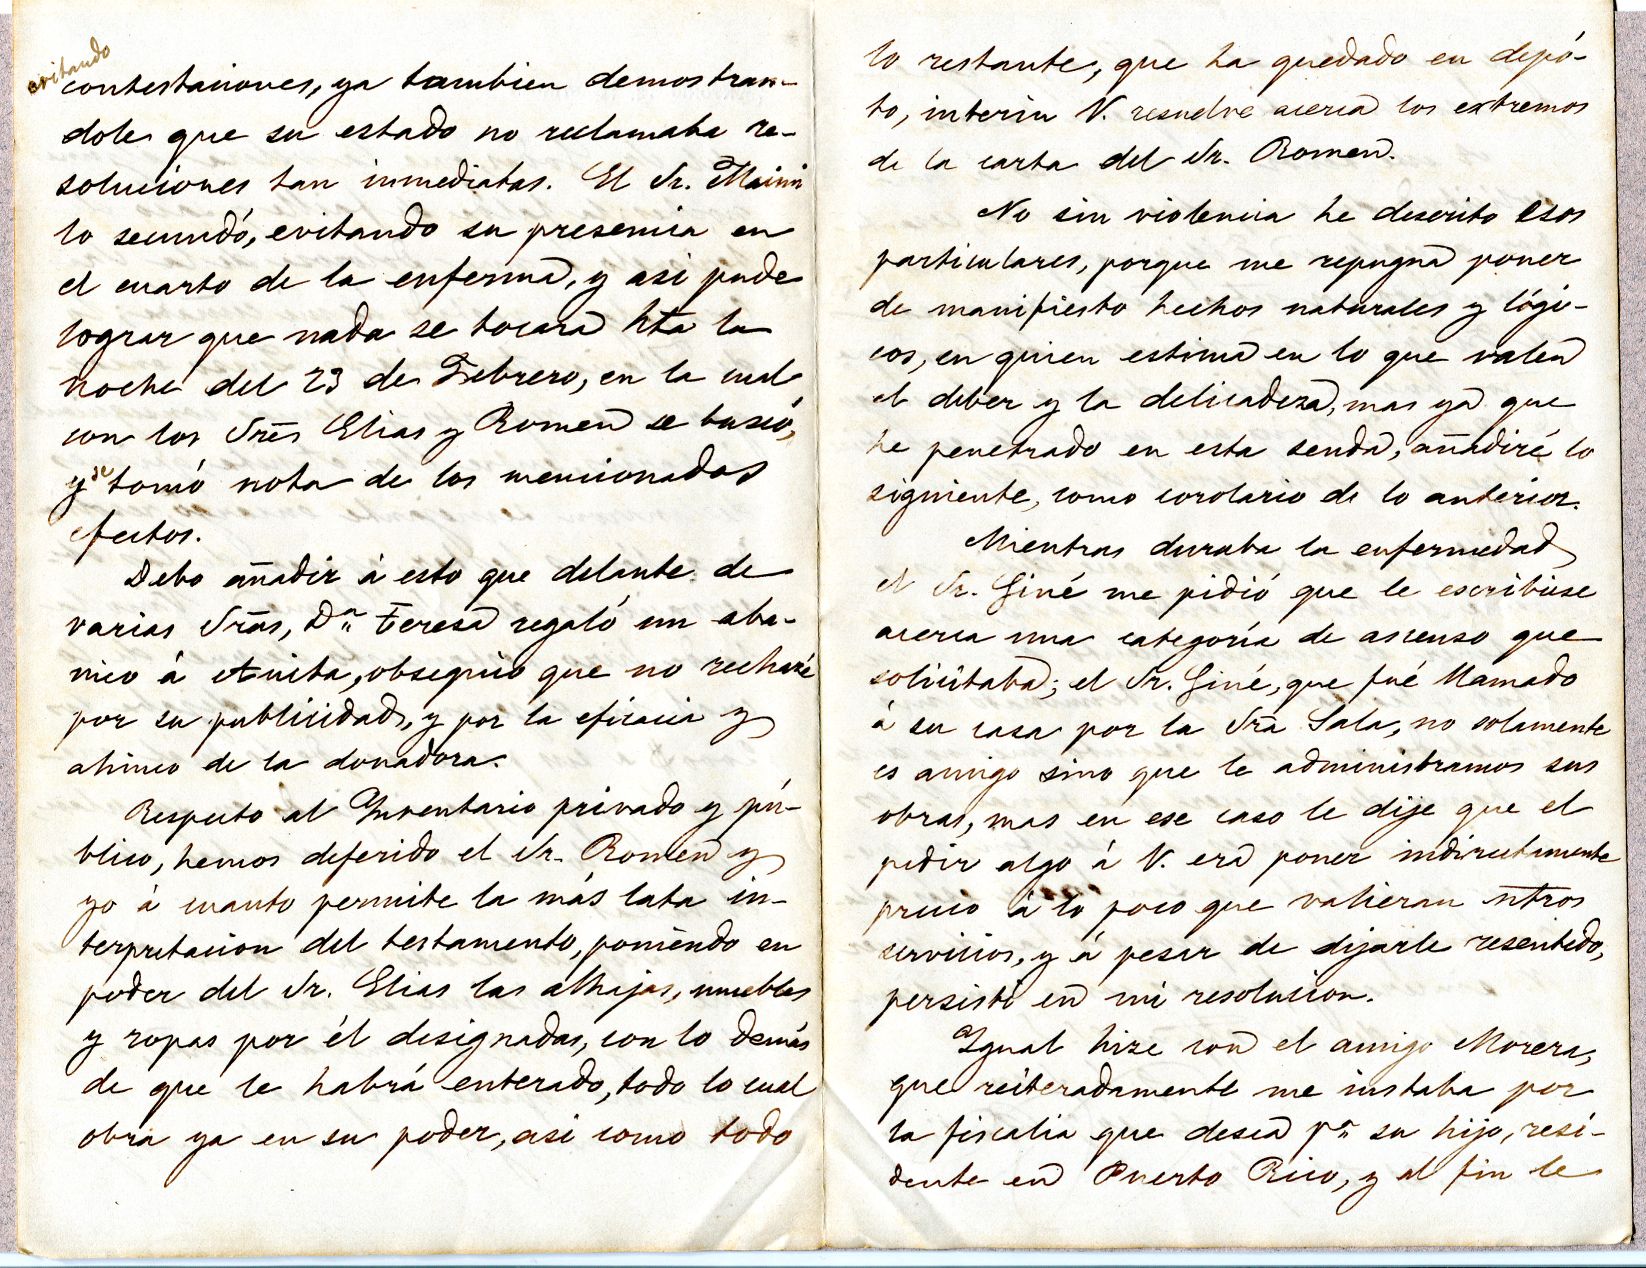 evitando
contestaciones, ya tambien demostran-
dole que su estado no reclamaba re-
soluciones tan inmediatas. El Sr. Maimi
lo secundó, evitando su presencia en
el cuarto de la enferma, y asi pude
lograr que nada se tocara hta la
noche del 23 de Febrero, en la cual
con los Sres Elias y Romeu se buscó,
y se tomó nota de los mencionados
efectos.
Debo añadir á esto que delante de
varias Sras, Da Teresa regaló un aba-
nico á Anita, obsequio que no rechacé
por su publicidad, y por la eficacia y
ahinco de la donadora.
Respecto al Inventario privado y pú-
blico, hemos deferido el Sr. Romeu y
yo á cuanto permite la más lata in-
terpretacion del testamento, poniendo en
poder del Sr. Elias las alhajas, muebles
y ropas por él designadas, con lo demás
de que le habrá enterado, todo lo cual
obra ya en su poder, asi como todo
lo restante, que ha quedado en depó-
to, interin V. resuelve acerca los extremos
de la carta del Sr. Romeu.
No sin violencia he descrito esos
particulares, porque me repugna poner
de manifiesto hechos naturales y lógi-
cos, en quien estima en lo que valen
el deber y la delicadeza, mas ya que
he penetrado en esta senda, añadiré lo
siguiente, como corolario de lo anterior.
Mientras duraba la enfermedad
el Sr. Giné me pidió que le escribiese
acerca una categoría de ascenso que
solicitaba; el Sr. Giné, que fué llamado
á su casa por la Sra Sala, no solamente
es amigo sino que le administramos sus
obras, mas en ese caso le dije que el
pedir algo á V. era poner indirectamente
precio á lo poco que valieran ntros
servicios, y á pesar de dejarle resentido,
persistí en mi resolucion.
Igual hize con el amigo Morera,
que reiteradamente me instaba por
la fiscalia que desea pa su hijo, resi-
dente en Puerto Rico, y al fin le